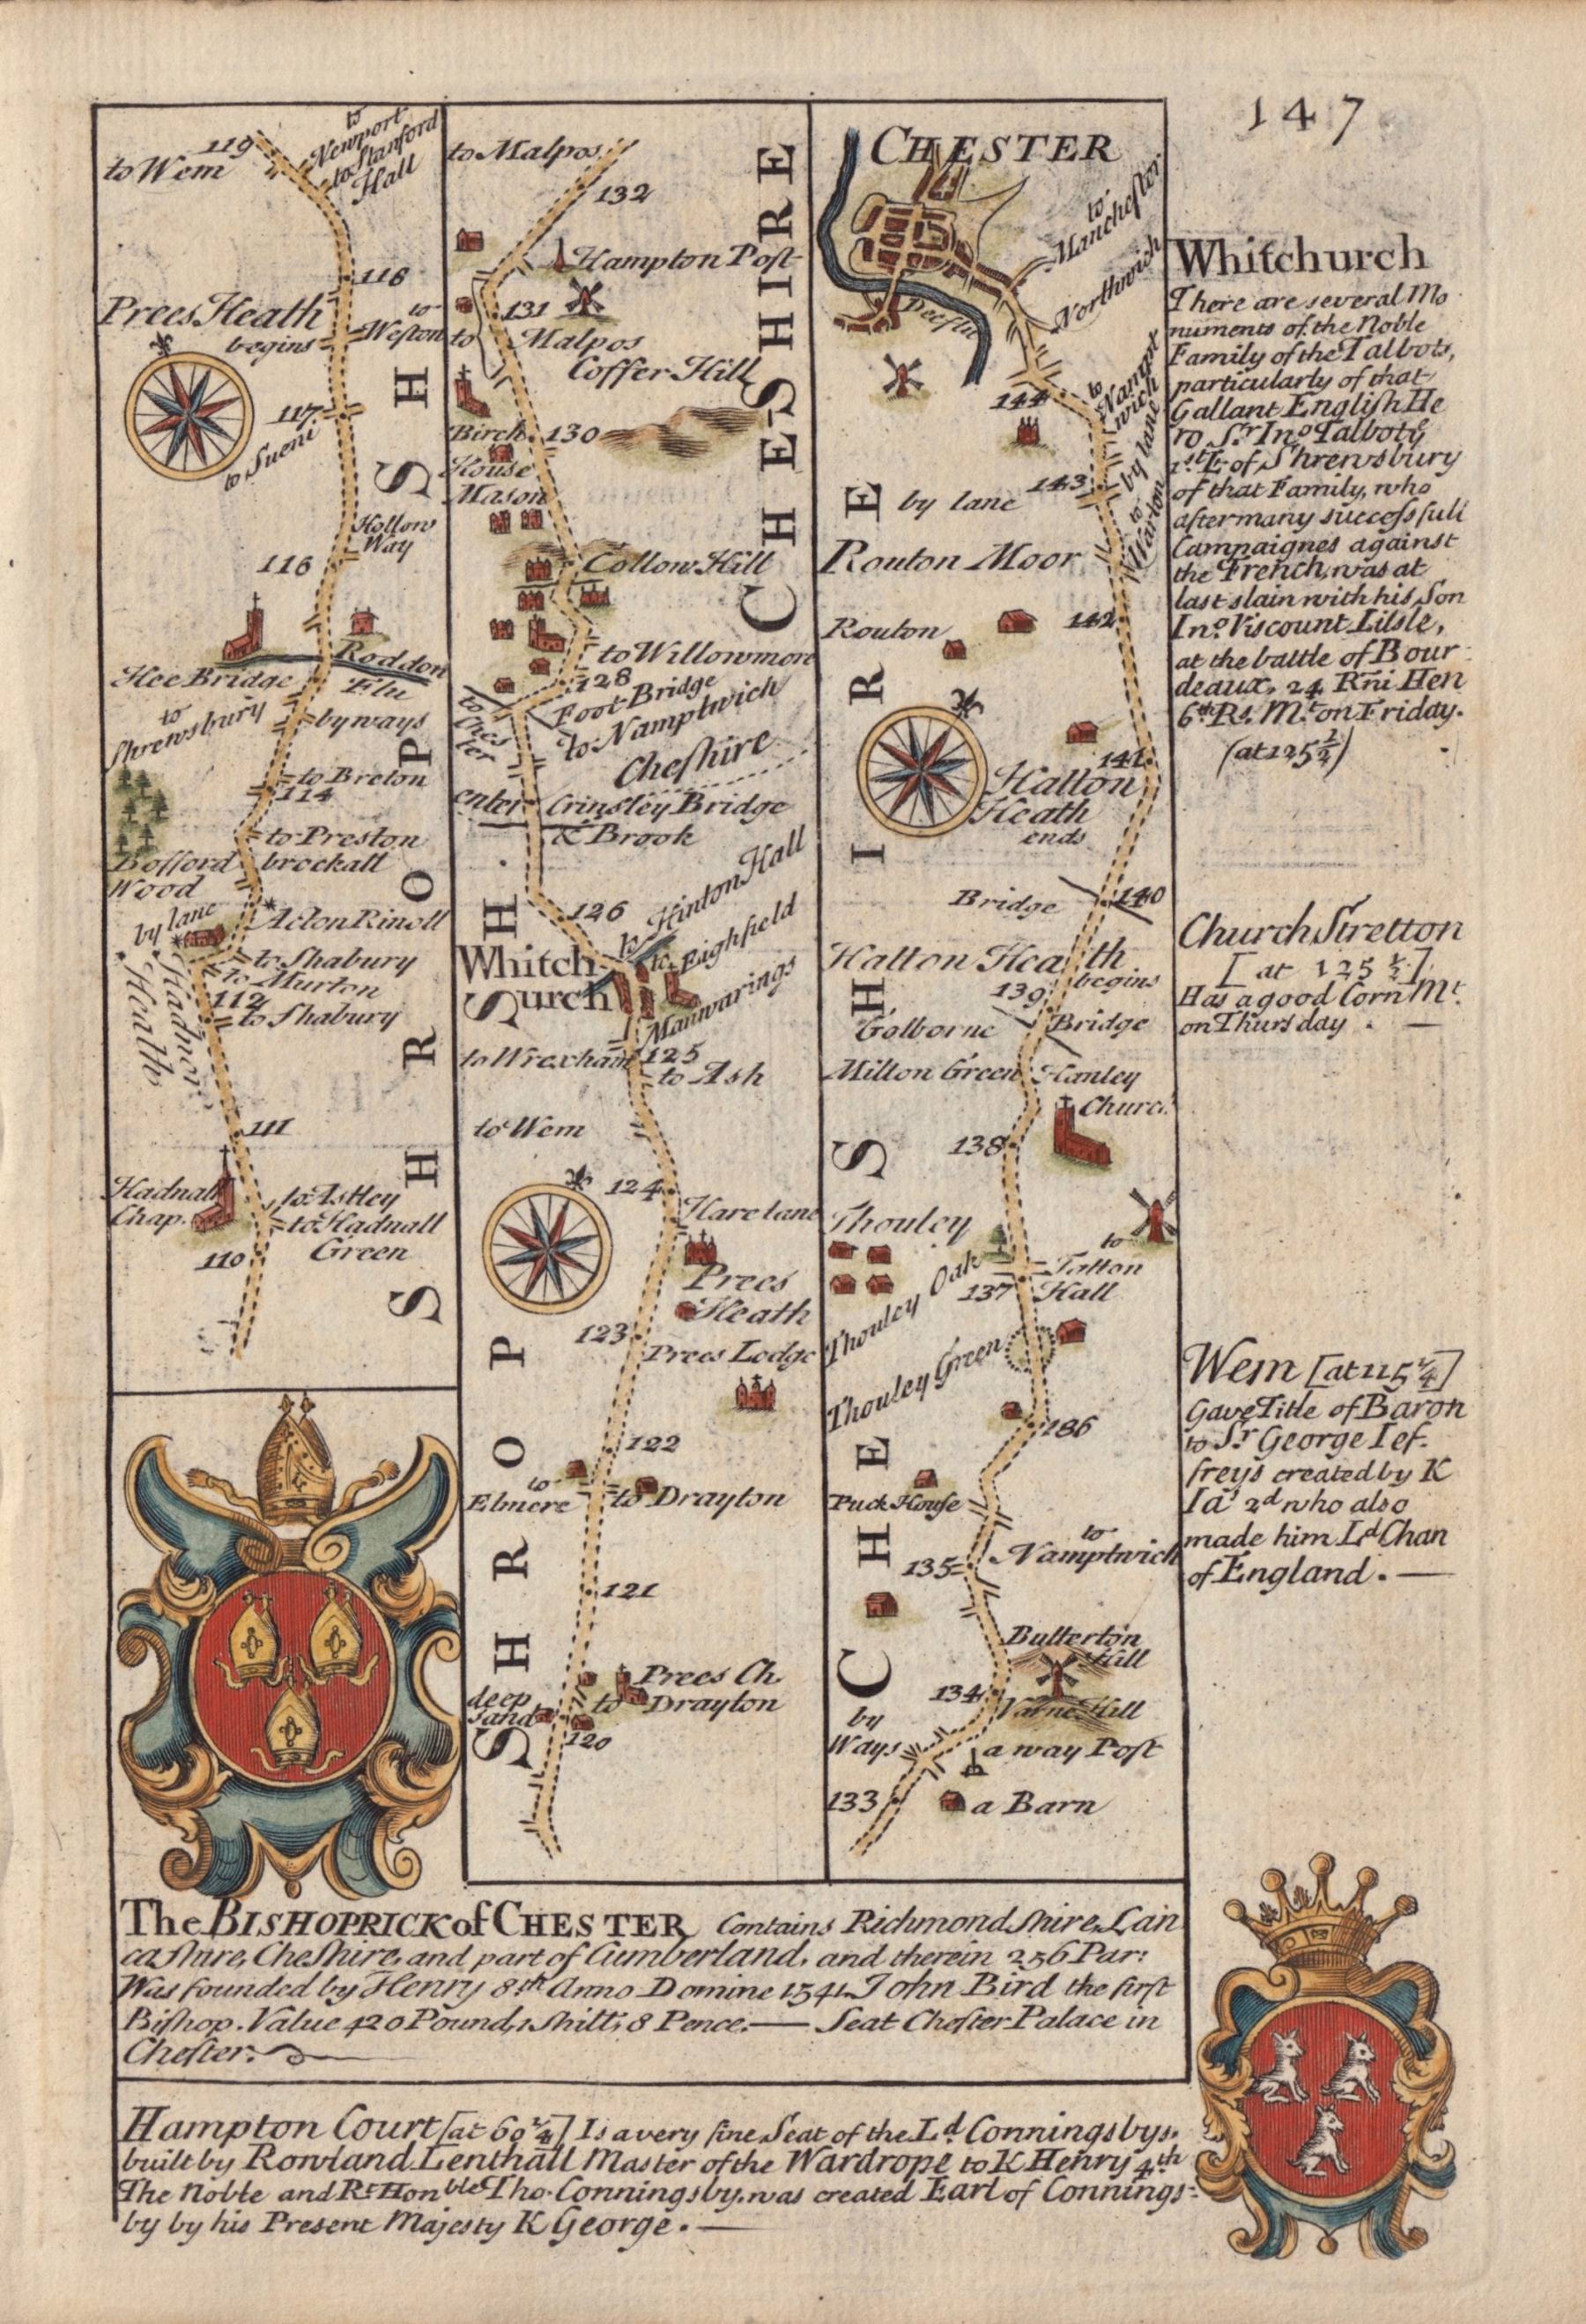 147
119
to Wem
to
Newport
to Stanford
Hall
118
Prees Heath
begins
to
Weston
117
to Sueni
Hollow
Way
116
Roddon
Flu
Hee Bridge
to
Shrewsbury
by ways
to Breton
114
to Preston
brockall
Bofford
Wood
by lane
Acton Rinoll
to Shabury
to Murton
112
to Shabury
Hadnor
Heath
111
Hadnall
Chap.
to Astley
to Hadnall
Green
110
SHROPSH
to Malpos
132
Hampton Post
131
to
Malpos
Coffer Hill
Birch
130
House
Mason
Collow Hill
to Willowmore
128
Foot Bridge
to Namptwich
to
Ches
ter
Cheshire
enter
Crinsley Bridge
& Brook
to Hinton Hall
126
to Highfield
Whitch
urch
Manwarings
to Wrexham
125
to Ash
to Wem
124
Harelane
Prees
Heath
123
Prees Lodge
122
to
Elmere
to Drayton
121
Prees Ch.
deep
sand
to Drayton
120
SHROPSH.
CHE-SHIRE
CHESTER
to
Manchester
Northwich
Dee flu
to
Nampt
wich
144
by lane
143
by lane
to
Warton
Routon Moor
142
Routon
141
Hatton
Heath
ends
Bridge
140
Hatton Heath
begins
139
Golborne
Bridge
Milton Green
Hanley
Churc.
138
Thouley
to
Tatton
Hall
Thouley Oak
137
Thouley Green
186
Puck House
to
Namptwich
135
Butterton
Hill
134
Varne Hill
by
Ways
a way Post
133
a Barn
CHESHIRE
Whitchurch
There are several Mo
numents of the Noble
Family of the Talbots,
particularly of that
Gallant English He
ro Sr. Ino. Talbot ye
1st E. of Shrewsbury
of that Family, who
after many successfull
Campaignes against
the French, was at
last slain with his Son
Ino. Viscount Lilsle,
at the battle of Bour
deaux. 24 Rni Hen
6th Rs. Mt. on Friday.
(at 125½)
Church Stretton
[at 125½]
Has a good Corn Mt.
on Thursday. —
Wem [at 115¼]
Gave Title of Baron
to Sr George Ief-
freys created by K
Ias 2d who also
made him Ld Chan
of England. —
The BISHOPRICK of CHESTER Contains Richmondshire, Lan
cashire, Cheshire, and part of Cumberland, and therein 256 Par:
Was founded by Henry 8th Anno Domine 1541 John Bird the first
Bishop. Value 420 Pound, 1 Shill; 8 Pence. — Seat Chester Palace in
Chester.
Hampton Court [at 60¼] Is a very fine Seat of the Ld. Conningsbys.
built by Rowland Lenthall Master of the Wardrope to K Henry 4th
The Noble and Rt Honble Tho. Conningsby, was created Earl of Connings-
by by his Present Majesty K George. —